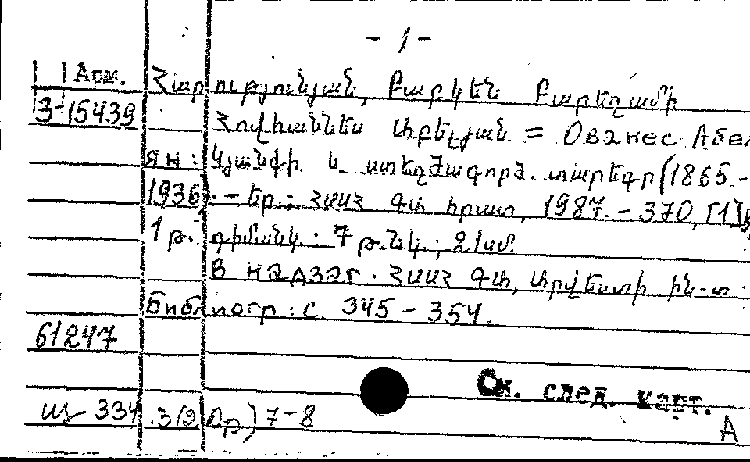 - 1 -
Арм. Հարությունյան, Բաբկեն Բարեղամի
3-15439
Հովհաննես Աբելյան = Ованес Абел
ян: Կյանքի և ստեղծագործ. տարեգր (1865.-
1936). - Եր.: ՀՍՍՀ ԳԱ հրատ, 1987. - 370, [1]
1 թ. դիմանկ.: 7 թ. նկ.; 21սմ
В надзаг. ՀՍՍՀ ԳԱ, Արվեստի ին-տ.
Библиогр: с. 345 - 354.
61247
См. след. карт.
334 7-8
А